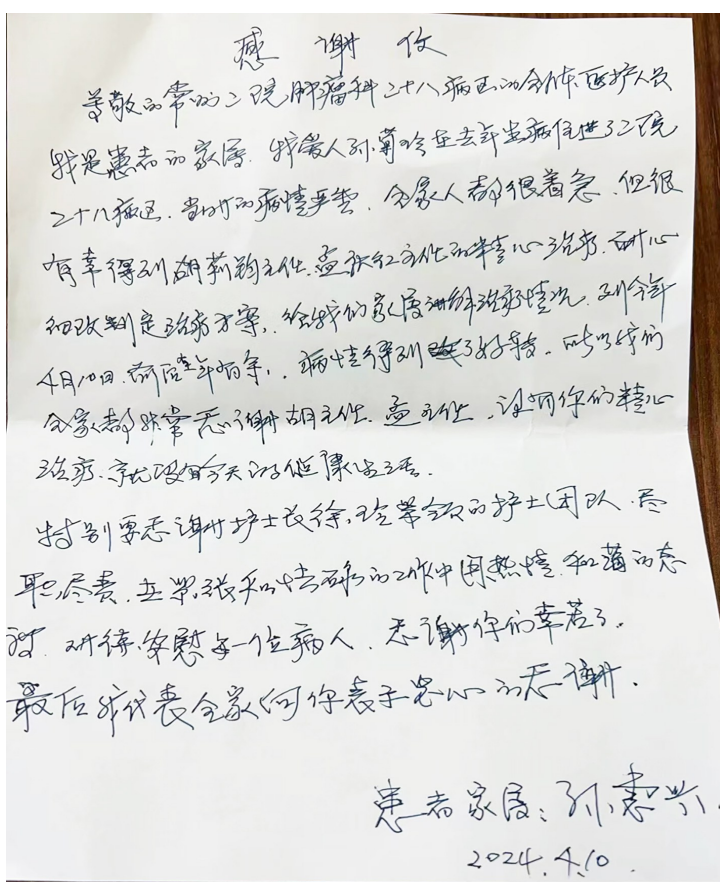 感谢仪
尊敬的常州二院肿瘤科二十八病区的全体医护人员
我是患者的家属.我爱人孙菊珍在去年生病住进了二院
二十八病区.当时的病情严重.全家人都很着急.但很
有幸得到胡莉钧主任.孟秋红主任的精心治疗.耐心
细致制定治疗方案.给我们家属讲解治疗情况.到今年
4月10日.前后壹年有余,.病情得到了好转.所以我们
全家都非常感谢胡主任.孟主任.没有你们的精心
治疗.就没有今天的健康生活.
特别要感谢护士长徐 带领的护士团队.尽
职尽责.在紧张和忙碌的工作中用热情.和蔼的态
度.对待.安慰每一位病人.感谢你们辛苦了.
最后我代表全家向你表示衷心的感谢.
患者家属:孙惠兴.
2024.4.10.